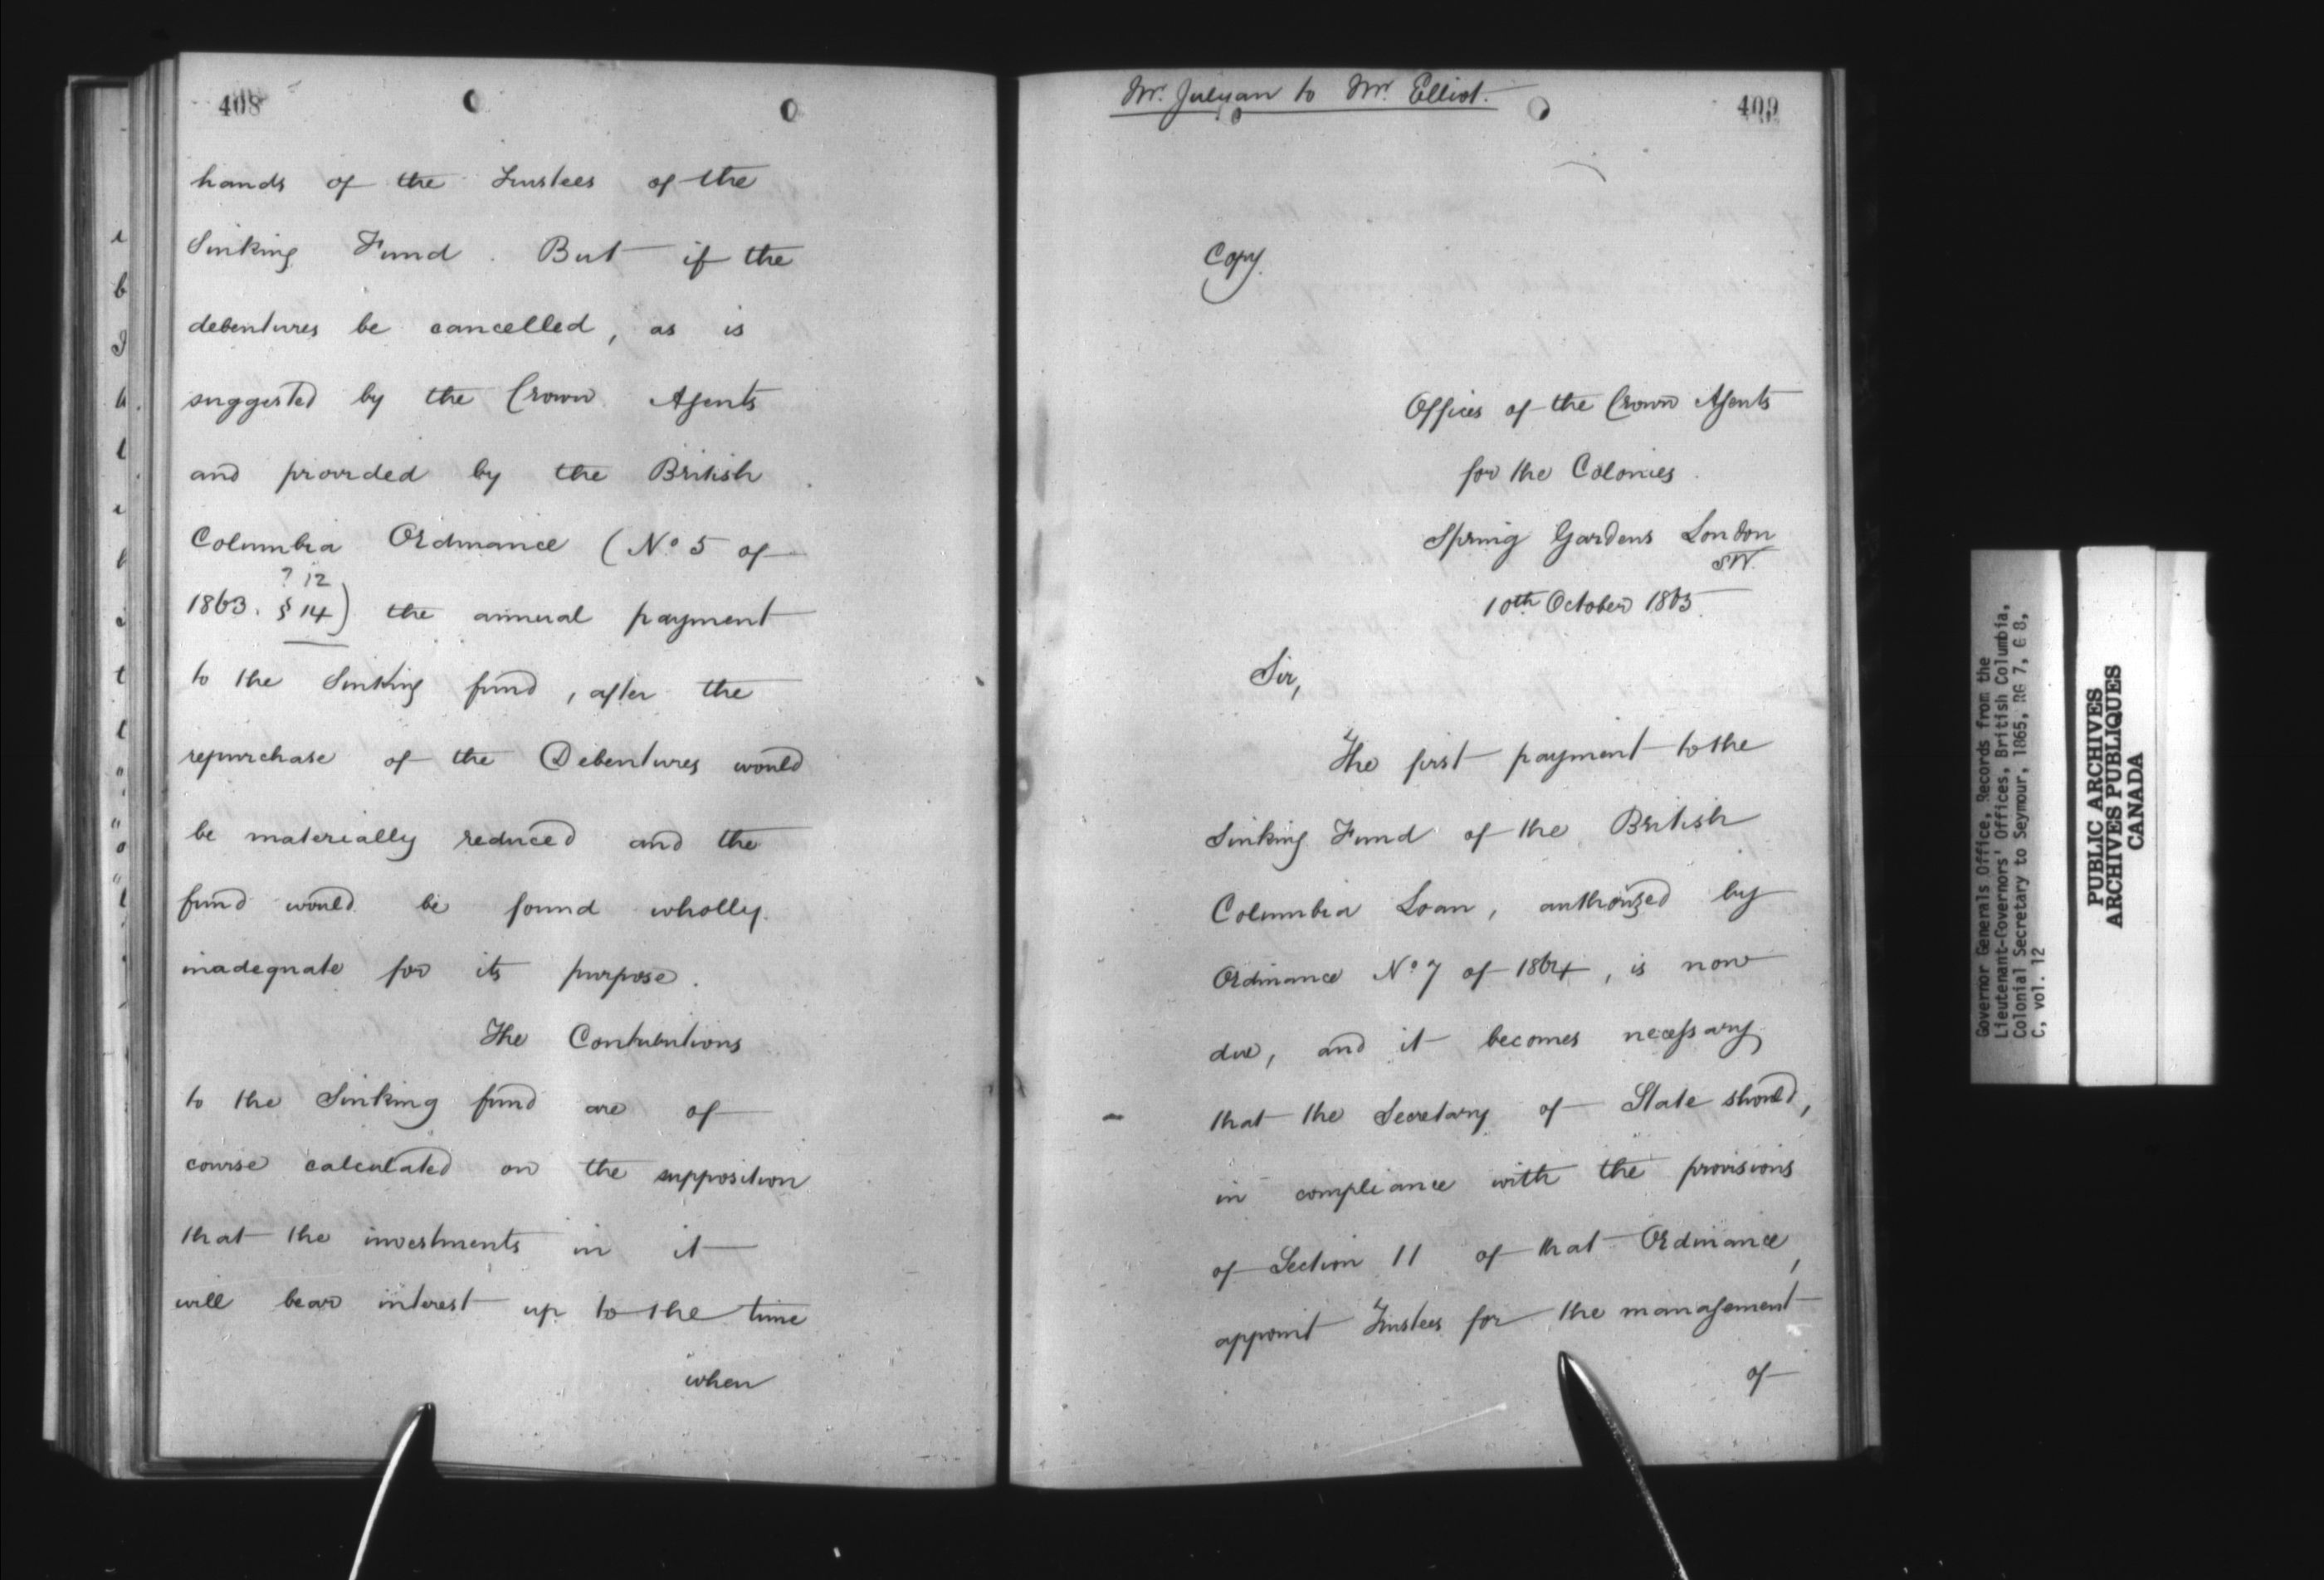 408
hands of the Trustees of the
Sinking Fund. But if the
debentures be cancelled, as is
suggested by the Crown Agents
and provided by the British
Columbia Ordinance (No 5 of
? 12
1863. § 14) the annual payment
to the Sinking fund, after the
repurchase of the Debentures would
be materially reduced and the
fund would be found wholly
inadequate for its purpose.
The Contributions
to the Sinking fund are of
course calculated on the supposition
that the investments in it
will bear interest up to the time
when
Mr. Julyan to Mr. Elliot.
409
Copy.
Offices of the Crown Agents
for the Colonies.
Spring Gardens London
SW.
10th October 1865.
Sir,
The first payment to the
Sinking Fund of the British
Columbia Loan, authorized by
Ordinance No 7 of 1864, is now
due, and it becomes necessary
that the Secretary of State should,
in compliance with the provisions
of Section 11 of that Ordinance,
appoint Trustees for the management
of
Governor Generals Office, Records from the
Lieutenant-Governors' Offices, British Columbia,
Colonial Secretary to Seymour, 1865, RG 7, G 8,
C, vol. 12
PUBLIC ARCHIVES
ARCHIVES PUBLIQUES
CANADA